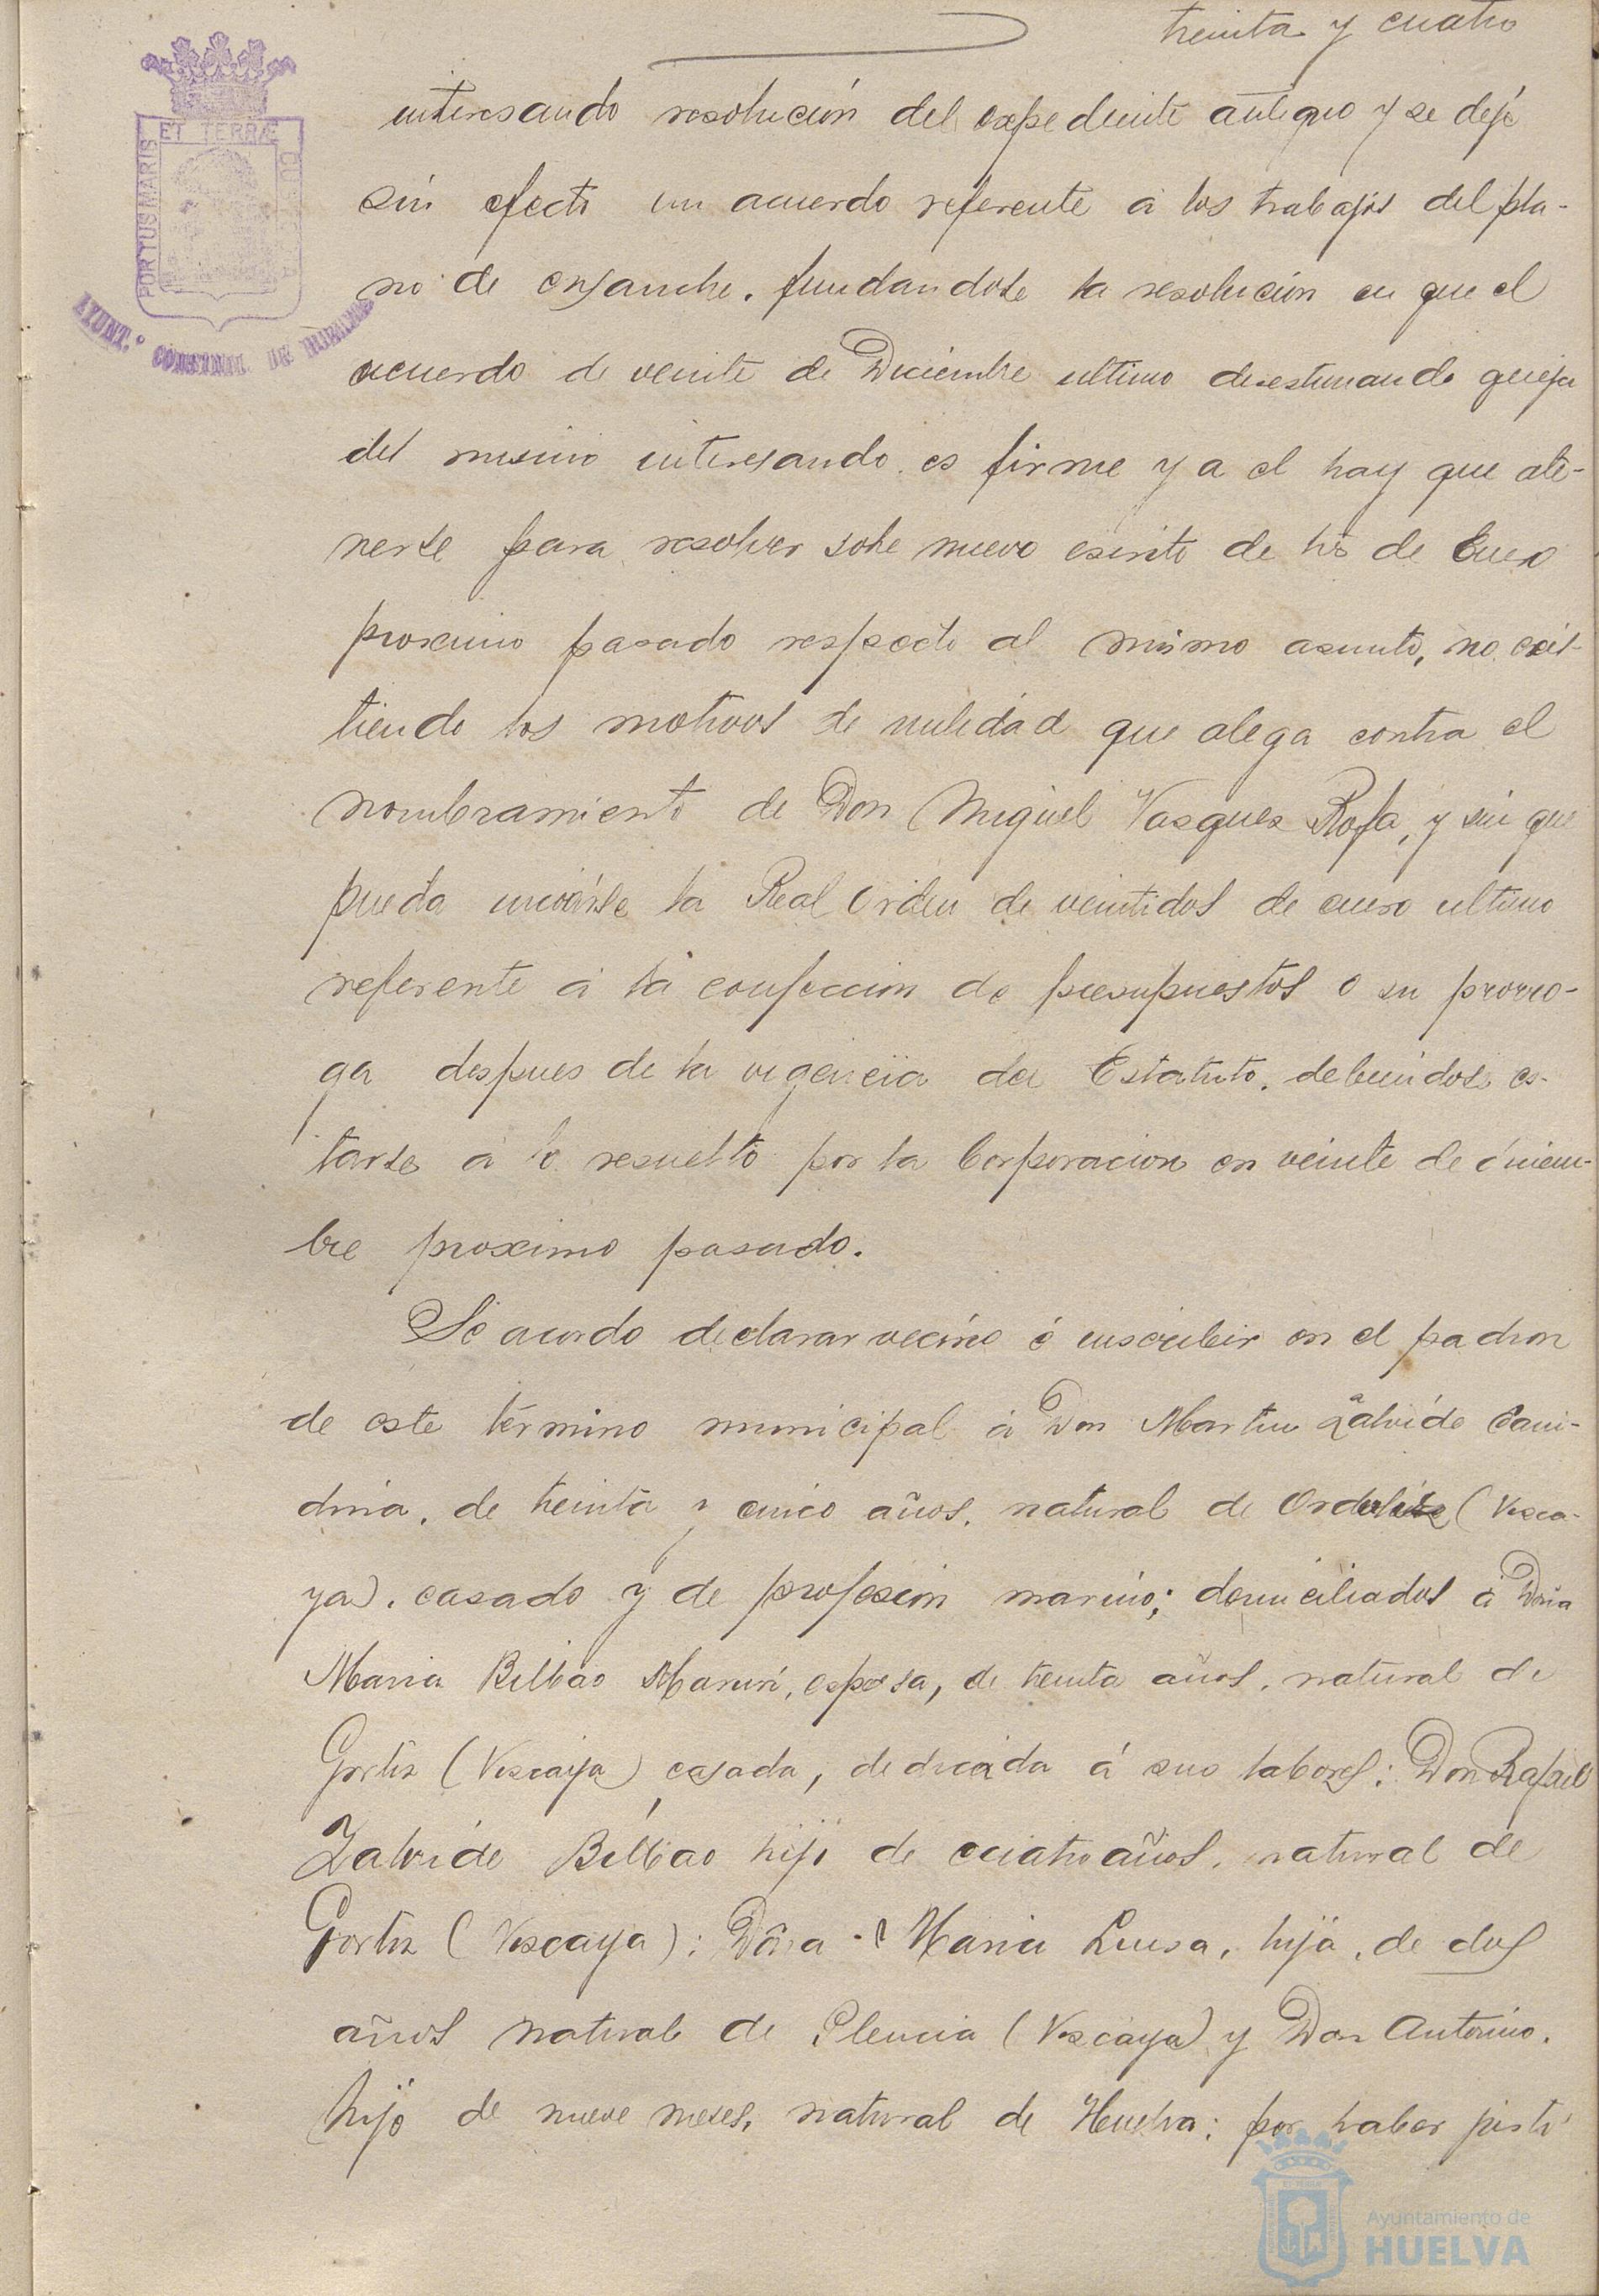 treinta y cuatro
ET TERRÆ
PORTUS MARIS
AYUNT.º CONSTNAL. DE HUELVA
interesando resolución del expediente antiguo y se deje
sin efecto un acuerdo referente á los trabajos del pla-
no de ensanche. fundandose la resolución en que el
acuerdo de veinte de Diciembre ultimo desestimando queja
del mismo interesando es firme y a el hay que ate-
nerse para resolver sobre nuevo escrito de tres de Enero
proximo pasado respecto al mismo asunto, no exis-
tiendo los motivos de nulidad que alega contra el
nombramiento de Don Miguel Vasquez Rofa, y sin que
pueda invocarse la Real Orden de veintidos de enero ultimo
referente á la confeccion de presupuestos o su prorro-
ga despues de la vigencia del Estatuto. debiendose es-
tarse á lo resuelto por la Corporacion en veinte de diciem-
bre proximo pasado.
Se acordo declarar vecino é inscribir en el padron
de este término municipal á Don Martin Zalvide
de treinta y cinco años, natural de (Visca-
ya), casado y de profesion marino; domiciliados á Doña
Maria Bilbao Maruri, esposa, de treinta años, natural de
Gorliz (Viscaya) casada, dedicada á sus labores; Don Rafael
Zalvide Bilbao hijo de cuatro años, natural de
Gorliz (Viscaya): Doña Maria Luisa, hija, de dos
años natural de Plencia (Viscaya) y Don Antonino.
hijo de nueve meses, natural de Huelva; por haber justi
Ayuntamiento de
HUELVA